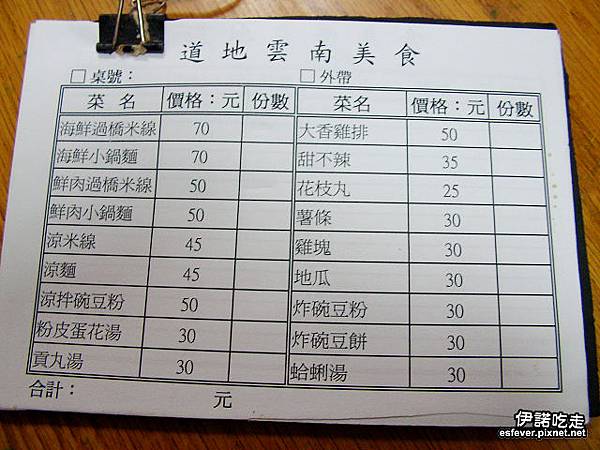 道地雲南美食
□ 桌號： □ 外帶
菜 名 價格：元 份數 菜名 價格：元 份數
海鮮過橋米線 70 大香雞排 50
海鮮小鍋麵 70 甜不辣 35
鮮肉過橋米線 50 花枝丸 25
鮮肉小鍋麵 50 薯條 30
涼米線 45 雞塊 30
涼麵 45 地瓜 30
涼拌碗豆粉 50 炸碗豆粉 30
粉皮蛋花湯 30 炸碗豆餅 30
貢丸湯 30 蛤蜊湯 30
合計： 元
伊諾吃走
esfever.pixnet.net